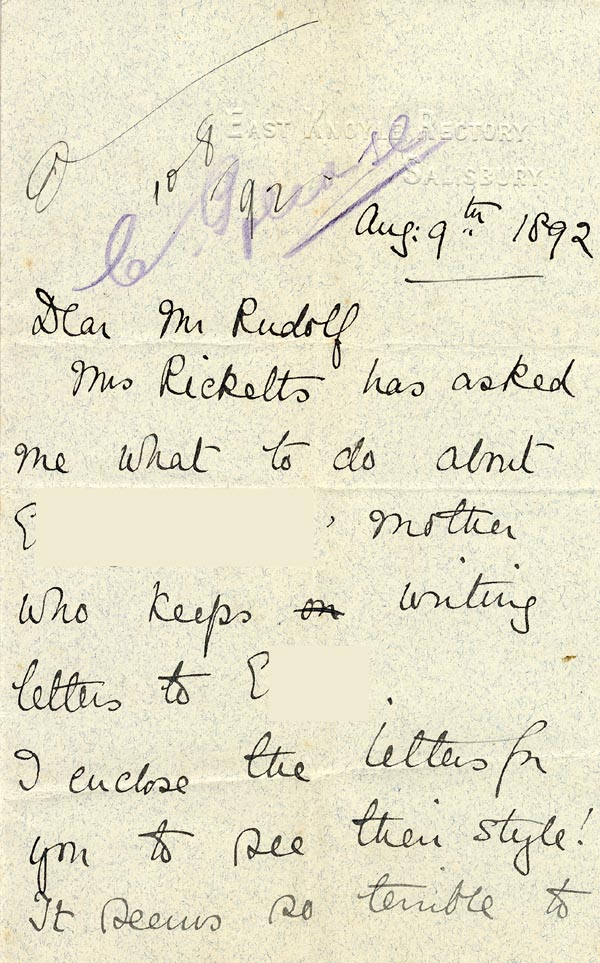 EAST KNOYLE RECTORY
SALISBURY.
10 8 92
Aug: 9th 1892
Dear Mr Rudolf
Mrs Ricketts has asked
me what to do about
E ' mother
who keeps on writing
letters to E
I enclose the letters for
you to see their style!
It seems so terrible to